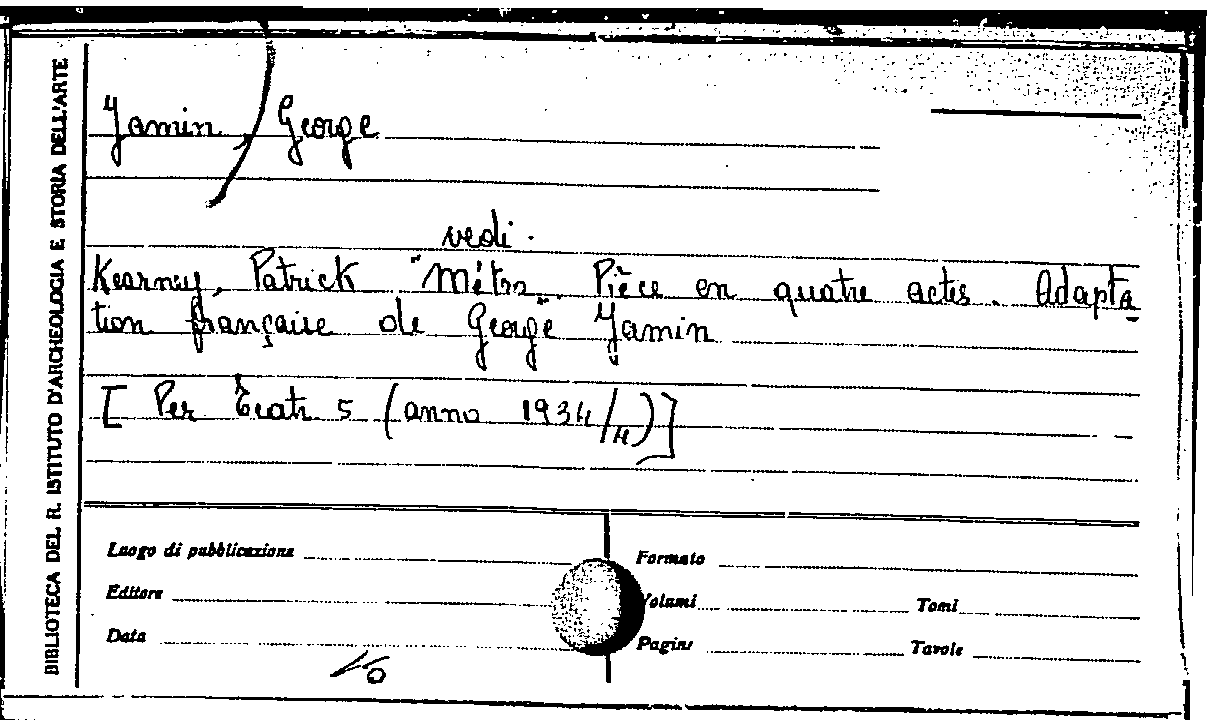 BIBLIOTECA DEL R. ISTITUTO D'ARCHEOLOGIA E STORIA DELL'ARTE
Jamin, George
vedi.
Kearney, Patrick "Métro" Pièce en quatre actes. Adapta-
tion française de George Jamin
[Per Teatr 5 (anno 1934/4)]
Luogo di pubblicazione
Formato
Editore
Volumi Tomi
Data
Pagine Tavole